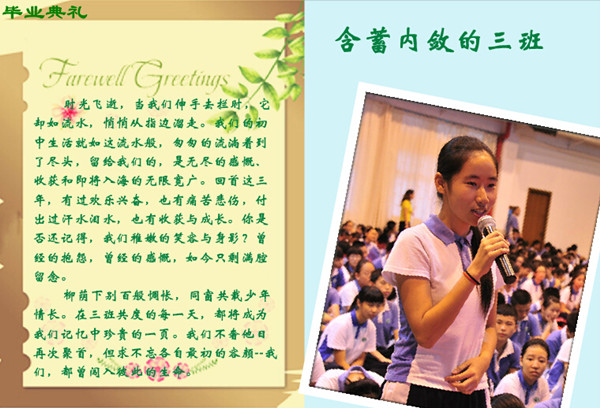 毕业典礼
含蓄内敛的三班
Farewell Greetings
时光飞逝，当我们伸手去拦时，它
却如流水，悄悄从指边溜走。我们的初
中生活就如这流水般，匆匆的流淌着到
了尽头，留给我们的，是无尽的感慨、
收获和即将入海的无限宽广。回首这三
年，有过欢乐兴奋，也有痛苦悲伤，付
出过汗水泪水，也有收获与成长。你是
否还记得，我们稚嫩的笑容与身影？曾
经的抱怨，曾经的感慨，如今只剩满腔
留念。
柳荫下别百般惆怅，同窗共载少年
情长。在三班共度的每一天，都将成为
我们记忆中珍贵的一页。我们不奢他日
再次聚首，但求不忘各自最初的容颜--我
们，都曾闯入彼此的生命。